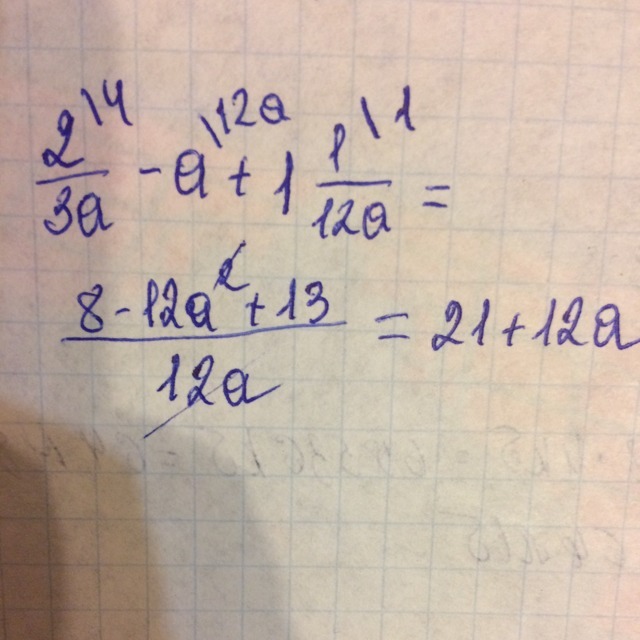 2/3a \4 - a \12a + 1 1/12a \1 =
(8 - 12a² + 13)/12a = 21 + 12a